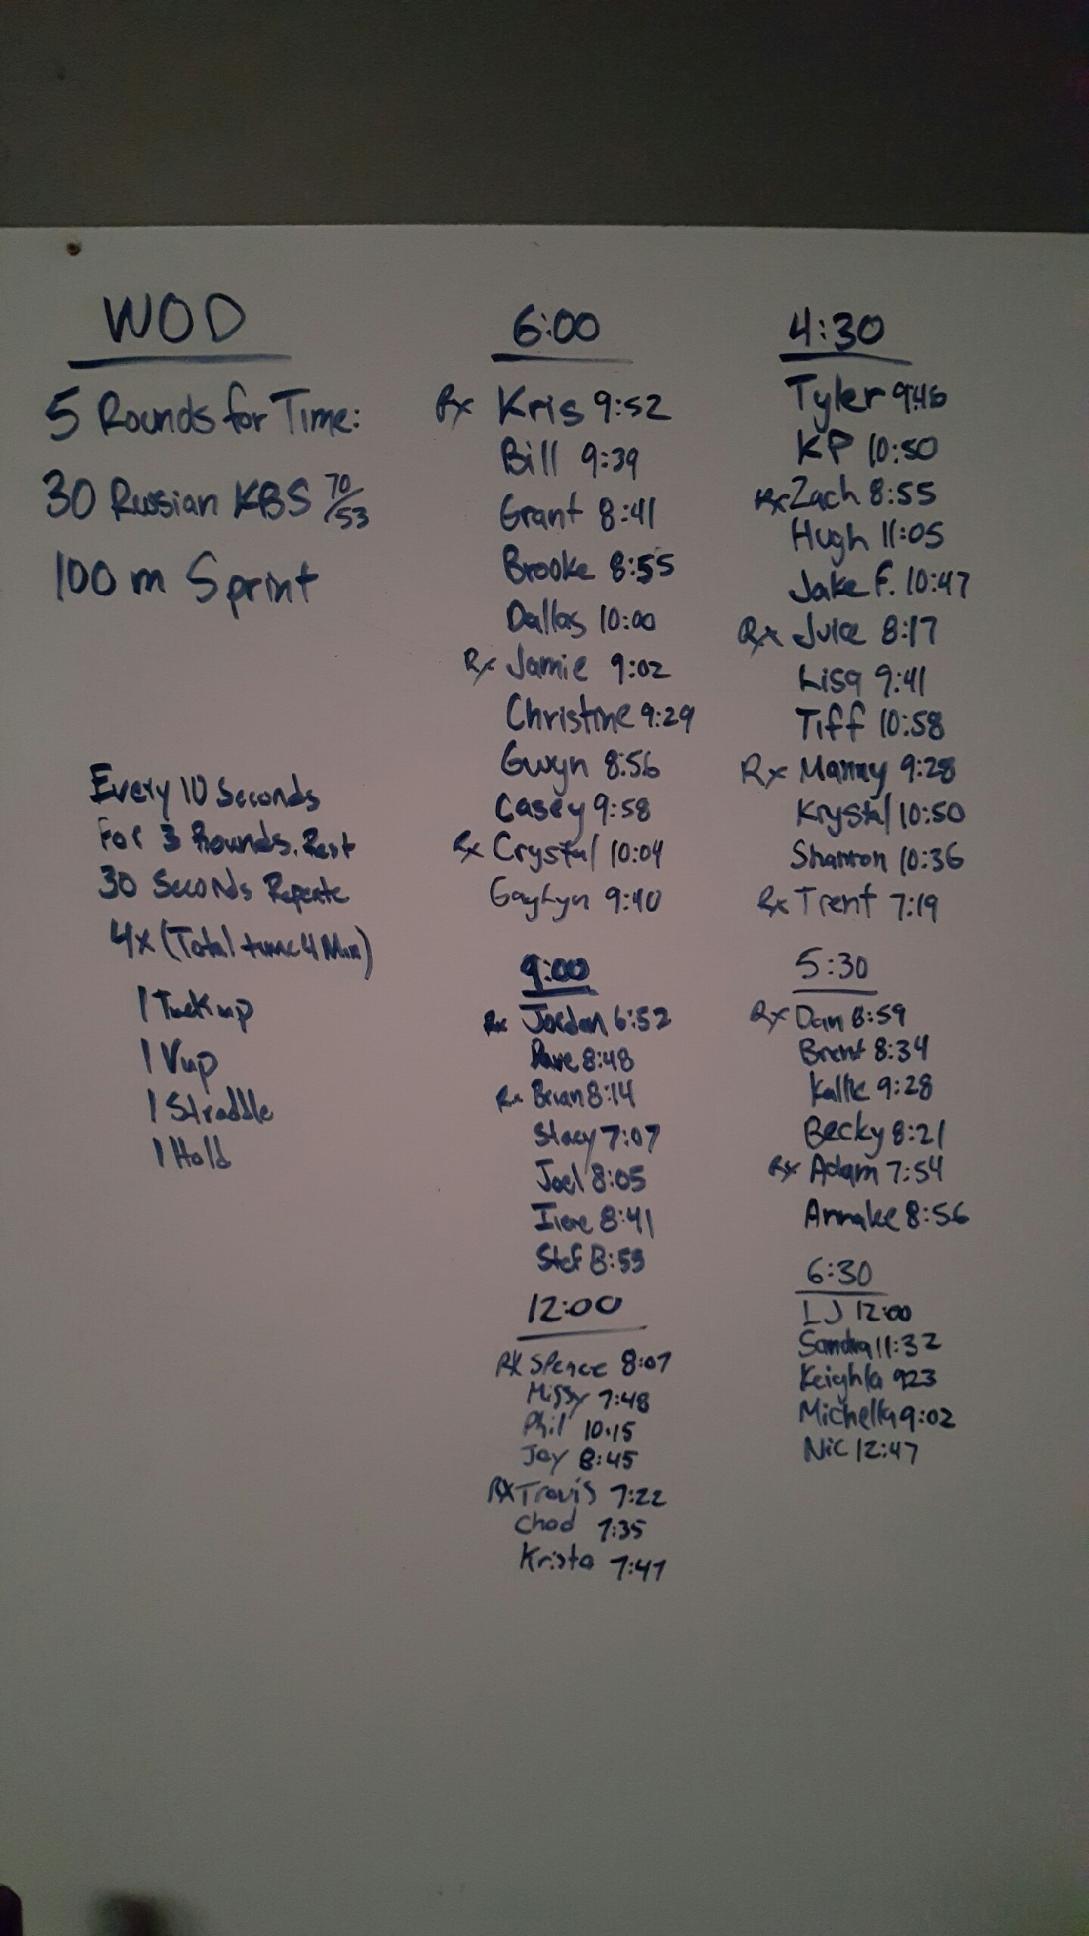 WOD
5 Rounds for Time:
30 Russian KBS 70/53
100 m Sprint
Every 10 Seconds
For 3 Rounds. Rest
30 Seconds Repeate
4x (Total time 4 Min)
1 Tuck up
1 Vup
1 Straddle
1 Hold
6:00
Rx Kris 9:52
Bill 9:39
Grant 8:41
Brooke 8:55
Dallas 10:00
Rx Jamie 9:02
Christine 9:29
Gwyn 8:56
Casey 9:58
Rx Crystal 10:04
Gaylyn 9:40
9:00
Rx Jordan 6:52
Dave 8:48
Rx Brian 8:14
Stacy 7:07
Joel 8:05
Irene 8:41
Stef 8:59
12:00
RX Spence 8:07
Missy 7:48
Phil 10:15
Jay 8:45
RX Travis 7:22
Chad 7:35
Krista 7:47
4:30
Tyler 9:46
KP 10:50
Rx Zach 8:55
Hugh 11:05
Jake F. 10:47
Rx Juice 8:17
Lisa 9:41
Tiff 10:58
Rx Manny 9:28
Krystal 10:50
Shannon 10:36
Rx Trent 7:19
5:30
Rx Dan 8:59
Brent 8:34
Kallie 9:28
Becky 8:21
Rx Adam 7:54
8:56
6:30
LJ 12:00
Sandra 11:32
Keighla 923
Michella 9:02
Nic 12:47